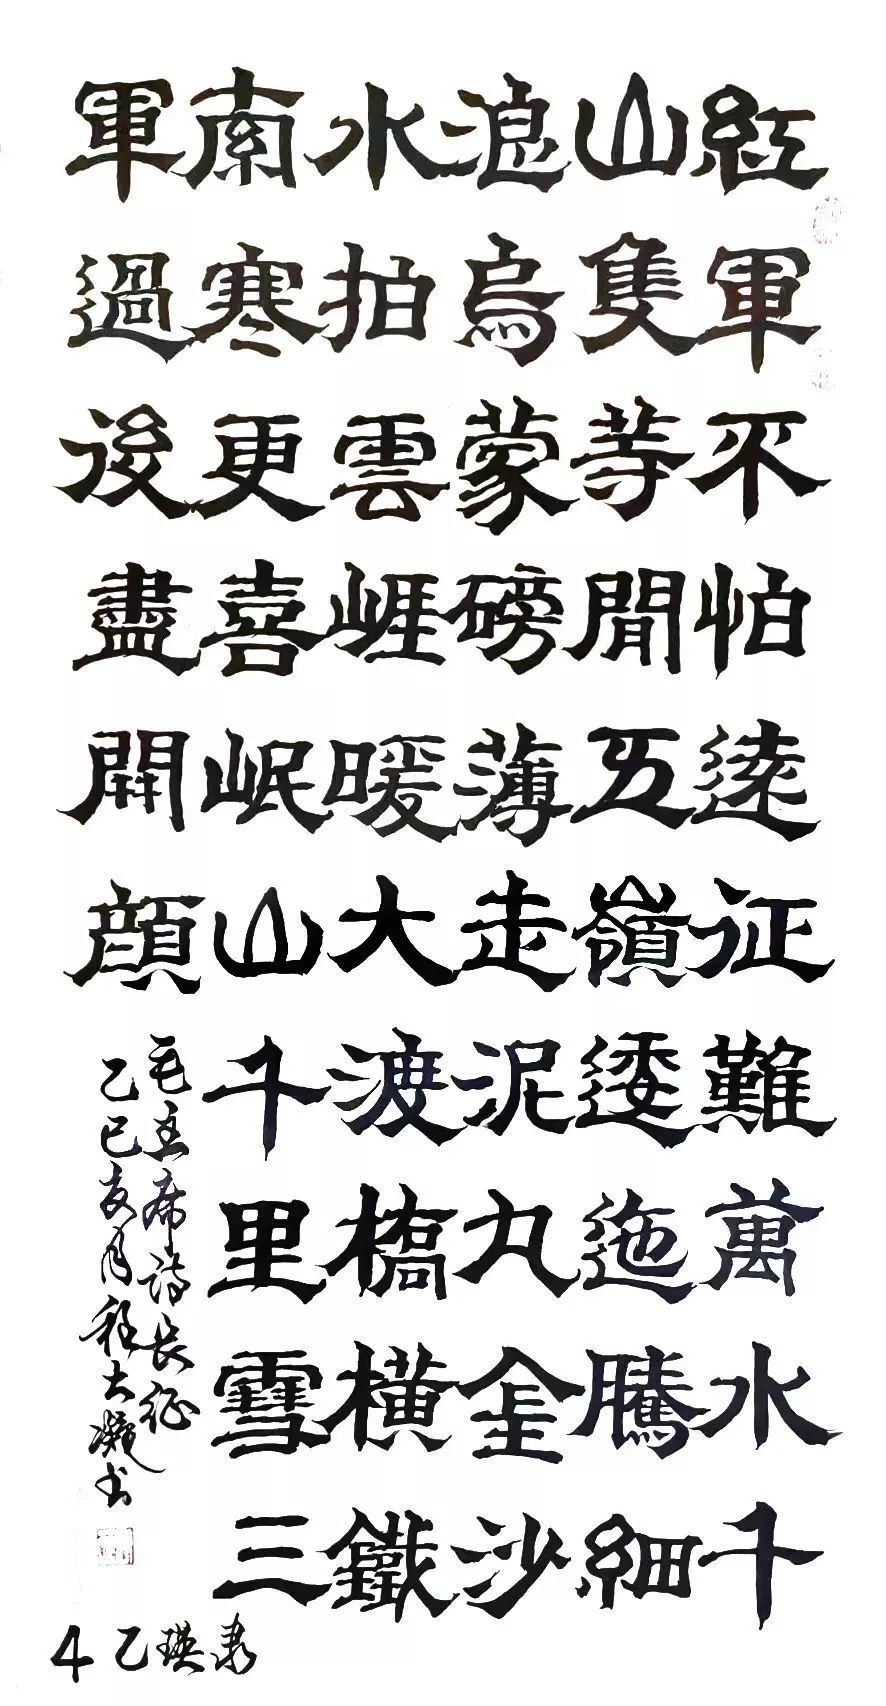 紅軍不怕遠征難萬水千
山隻等閒五嶺逶迤騰細
浪烏蒙磅薄走泥丸金沙
水拍雲崕暖大渡橋橫鐵
索寒更喜岷山千里雪三
軍過後盡開顏
毛主席詩長征
乙巳亥月程大凝书
4 乙瑛隶